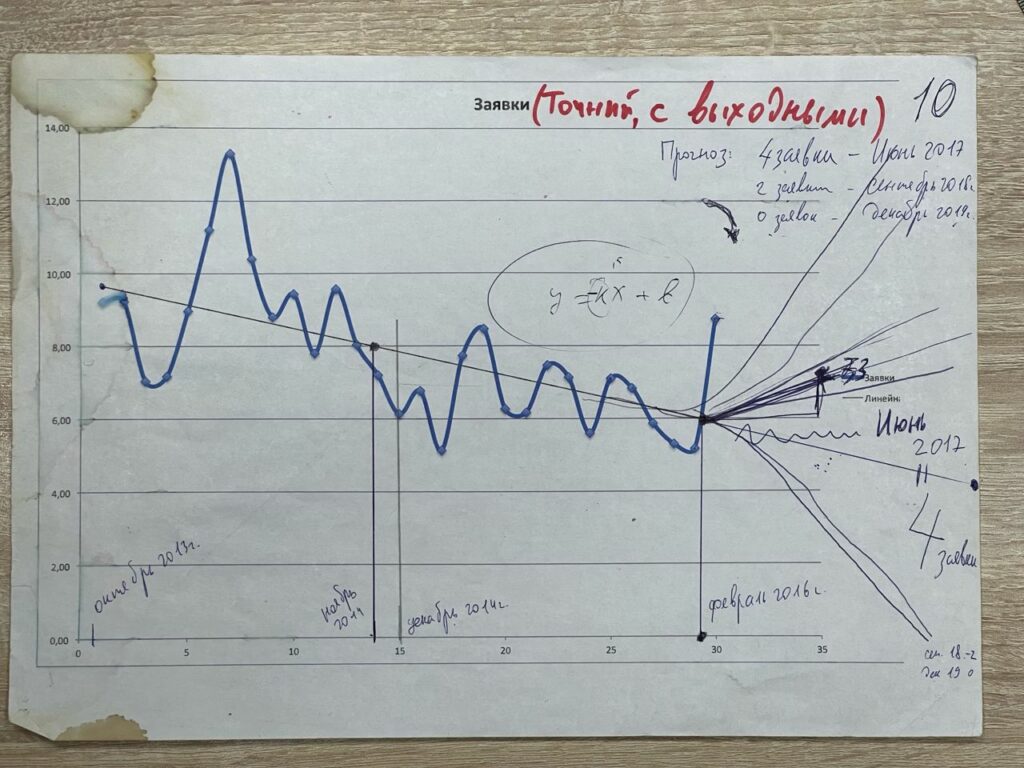 Заявки (Точный, с выходными) 10
Прогноз: 4 заявки – Июнь 2017
2 заявки – Сентябрь 2018г.
0 заявок – Декабрь 2019г.
14,00
12,00
10,00
8,00
6,00
4,00
2,00
0,00
y = -kx + b
7,3
Заявки
Линейн
Июнь
2017
4
заявки
октябрь 2013г.
ноябрь
2014
декабрь 2014г.
февраль 2016г.
0 5 10 15 20 25 30 35
сен. 18 - 2
дек 19 0